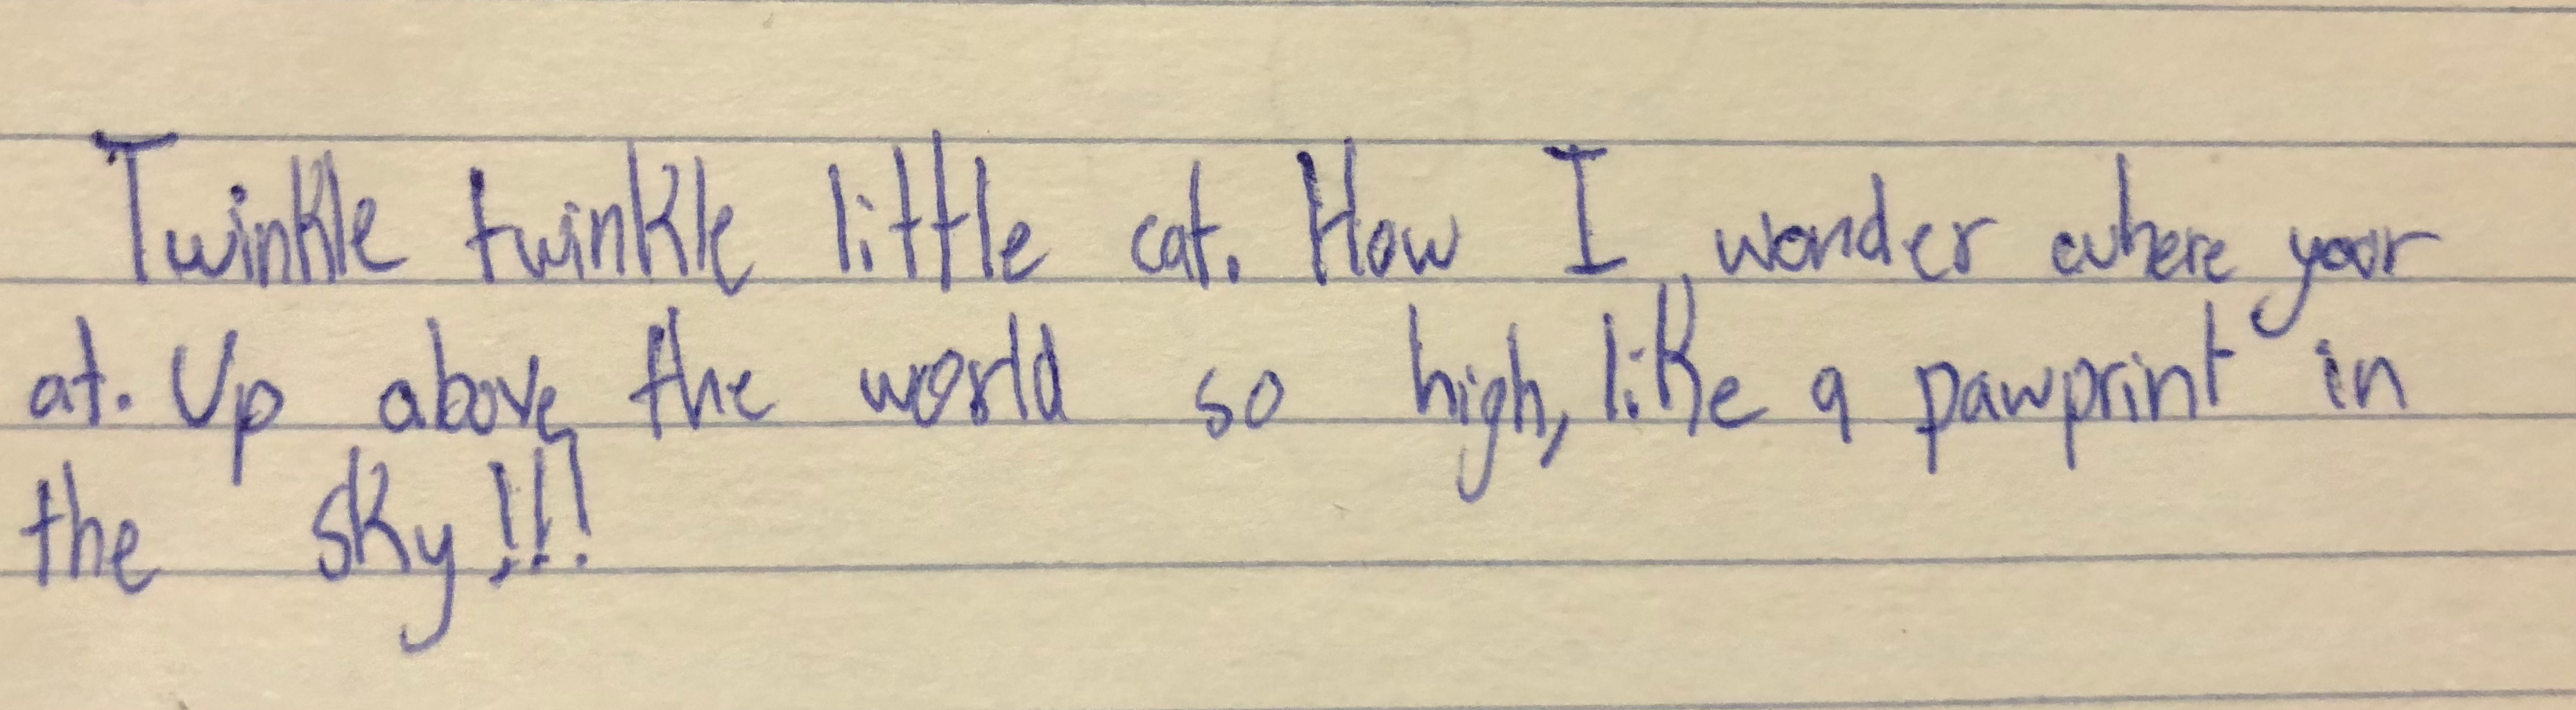 Twinkle twinkle little cat. How I wonder where your
at. Up above the world so high, like a pawprint in
the sky!!!